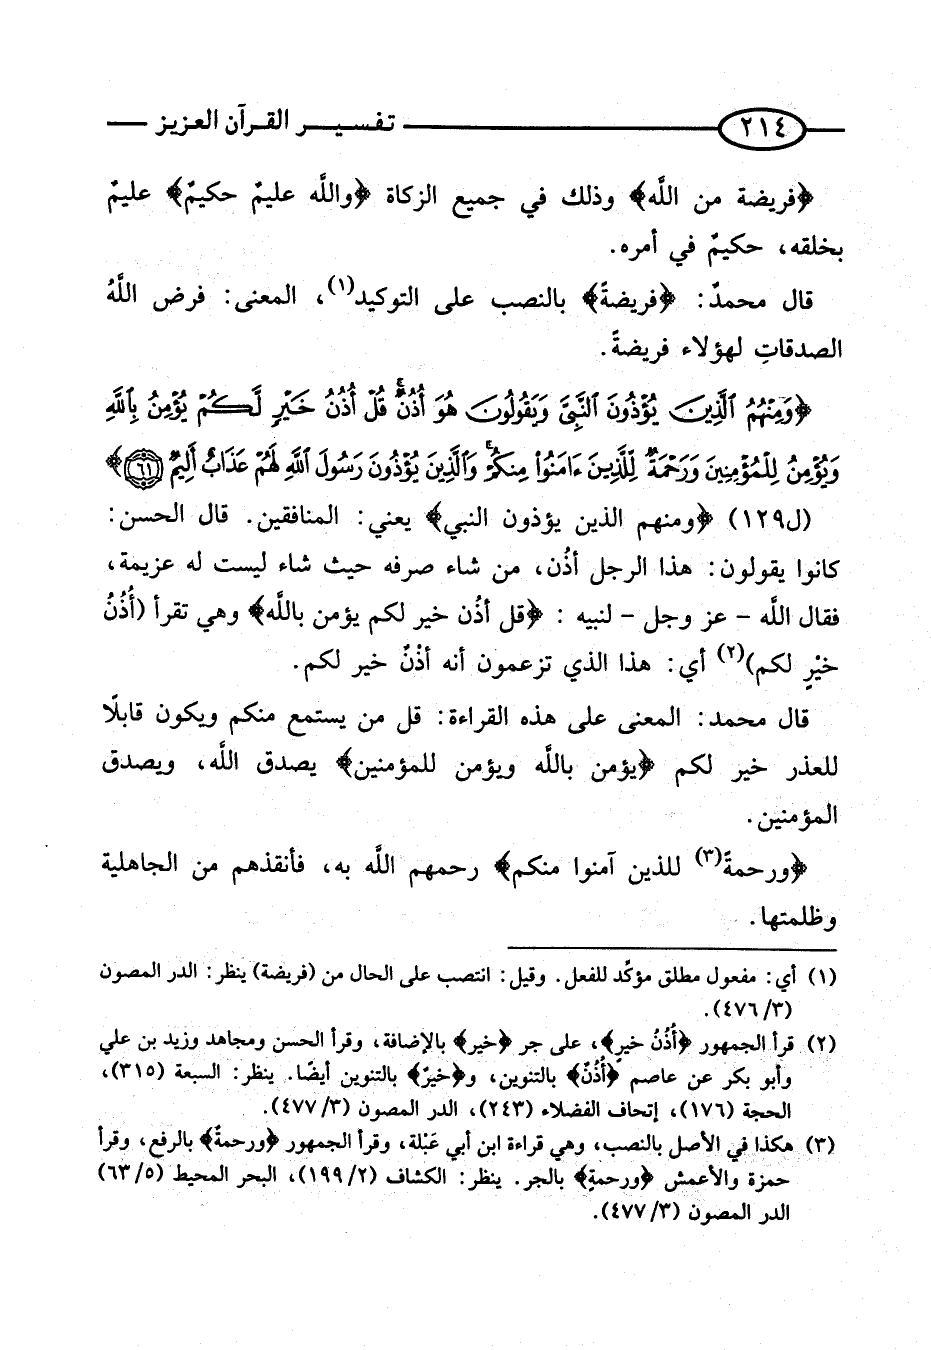 ٢١٤ تفسير القرآن العزيز
﴿فريضة من اللَّه﴾ وذلك في جميع الزكاة ﴿واللَّه عليمٌ حكيمٌ﴾ عليمٌ
بخلقه، حكيمٌ في أمره.
قال محمدٌ: ﴿فريضةً﴾ بالنصب على التوكيد(١)، المعنى: فرض اللَّهُ
الصدقاتِ لهؤلاء فريضةً.
﴿وَمِنْهُمُ ٱلَّذِينَ يُؤْذُونَ ٱلنَّبِىَّ وَيَقُولُونَ هُوَ أُذُنٌ ۚ قُلْ أُذُنُ خَيْرٍ لَّكُمْ يُؤْمِنُ بِٱللَّهِ
وَيُؤْمِنُ لِلْمُؤْمِنِينَ وَرَحْمَةٌ لِّلَّذِينَ ءَامَنُوا۟ مِنكُمْ ۚ وَٱلَّذِينَ يُؤْذُونَ رَسُولَ ٱللَّهِ لَهُمْ عَذَابٌ أَلِيمٌ ٦١﴾
(ل١٢٩) ﴿ومنهم الذين يؤذون النبي﴾ يعني: المنافقين. قال الحسن:
كانوا يقولون: هذا الرجل أذُن، من شاء صرفه حيث شاء ليست له عزيمة،
فقال اللَّه - عز وجل - لنبيه : ﴿قل أذُن خير لكم يؤمن باللَّه﴾ وهي تقرأ (أُذُنُ
خيْرٍ لكم)(٢) أي: هذا الذي تزعمون أنه أذْنٌ خير لكم.
قال محمد: المعنى على هذه القراءة: قل من يستمع منكم ويكون قابلًا
للعذر خير لكم ﴿يؤمن باللَّه ويؤمن للمؤمنين﴾ يصدق اللَّه، ويصدق
المؤمنين.
﴿ورحمةً(٣) للذين آمنوا منكم﴾ رحمهم اللَّه به، فأنقذهم من الجاهلية
وظلمتها.
(١) أي: مفعول مطلق مؤكّد للفعل. وقيل: انتصب على الحال من (فريضة) ينظر: الدر المصون
(٤٧٦/٣).
(٢) قرأ الجمهور ﴿أُذُنُ خيرٍ﴾، على جر ﴿خير﴾ بالإضافة، وقرأ الحسن ومجاهد وزيد بن علي
وأبو بكر عن عاصم ﴿أُذُنٌ﴾ بالتنوين، و﴿خيرٌ﴾ بالتنوين أيضًا. ينظر: السبعة (٣١٥)،
الحجة (١٧٦)، إتحاف الفضلاء (٢٤٣)، الدر المصون (٤٧٧/٣).
(٣) هكذا في الأصل بالنصب، وهي قراءة ابن أبي عَبْلة، وقرأ الجمهور ﴿ورحمةٌ﴾ بالرفع، وقرأ
حمزة والأعمش ﴿ورحمةٍ﴾ بالجر. ينظر: الكشاف (١٩٩/٢)، البحر المحيط (٦٣/٥)
الدر المصون (٤٧٧/٣).